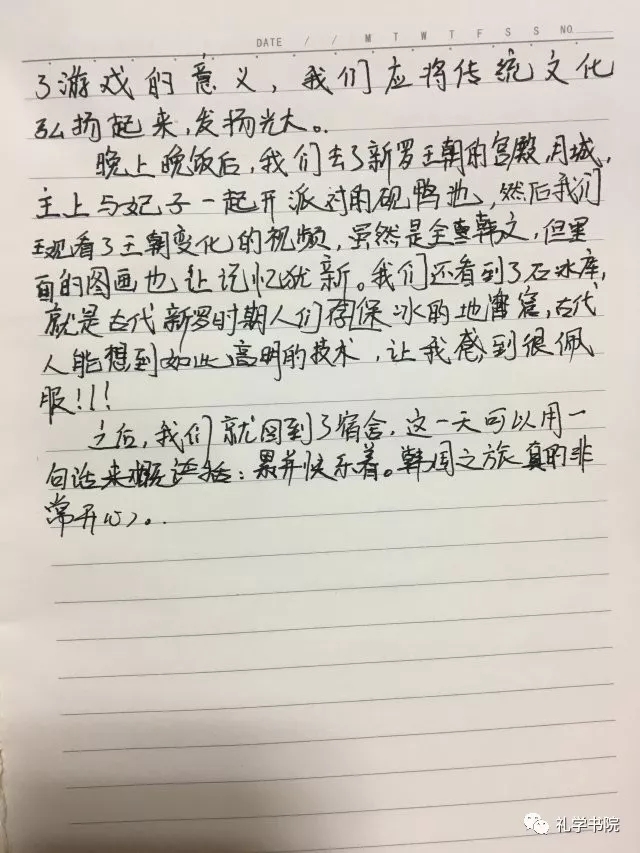 DATE / / M T W T F S S NO.
了游戏的意义，我们应将传统文化
弘扬起来，发扬光大。
晚上晚饭后，我们去了新罗王朝的宫殿，月城，
主上与妃子一起开派对的砚鸭池，然后我们
观看了王朝变化的视频，虽然是全韩文，但里
面的图画也让记忆犹新。我们还看到了石冰库，
就是古代新罗时期人们存保冰的地窖，古代
人能想到如此高明的技术，让我感到很佩
服！！！
之后，我们就回到了宿舍，这一天可以用一
句话来概括：累并快乐着。韩国之旅真的非
常开心。
礼学书院